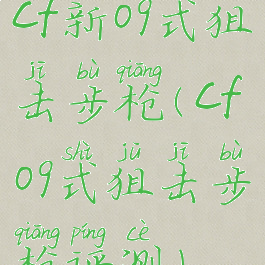 cf新09式狙
jī bù qiāng
击步枪(cf
shì jū jī bù
09式狙击步
qiāng píng cè
枪评测)